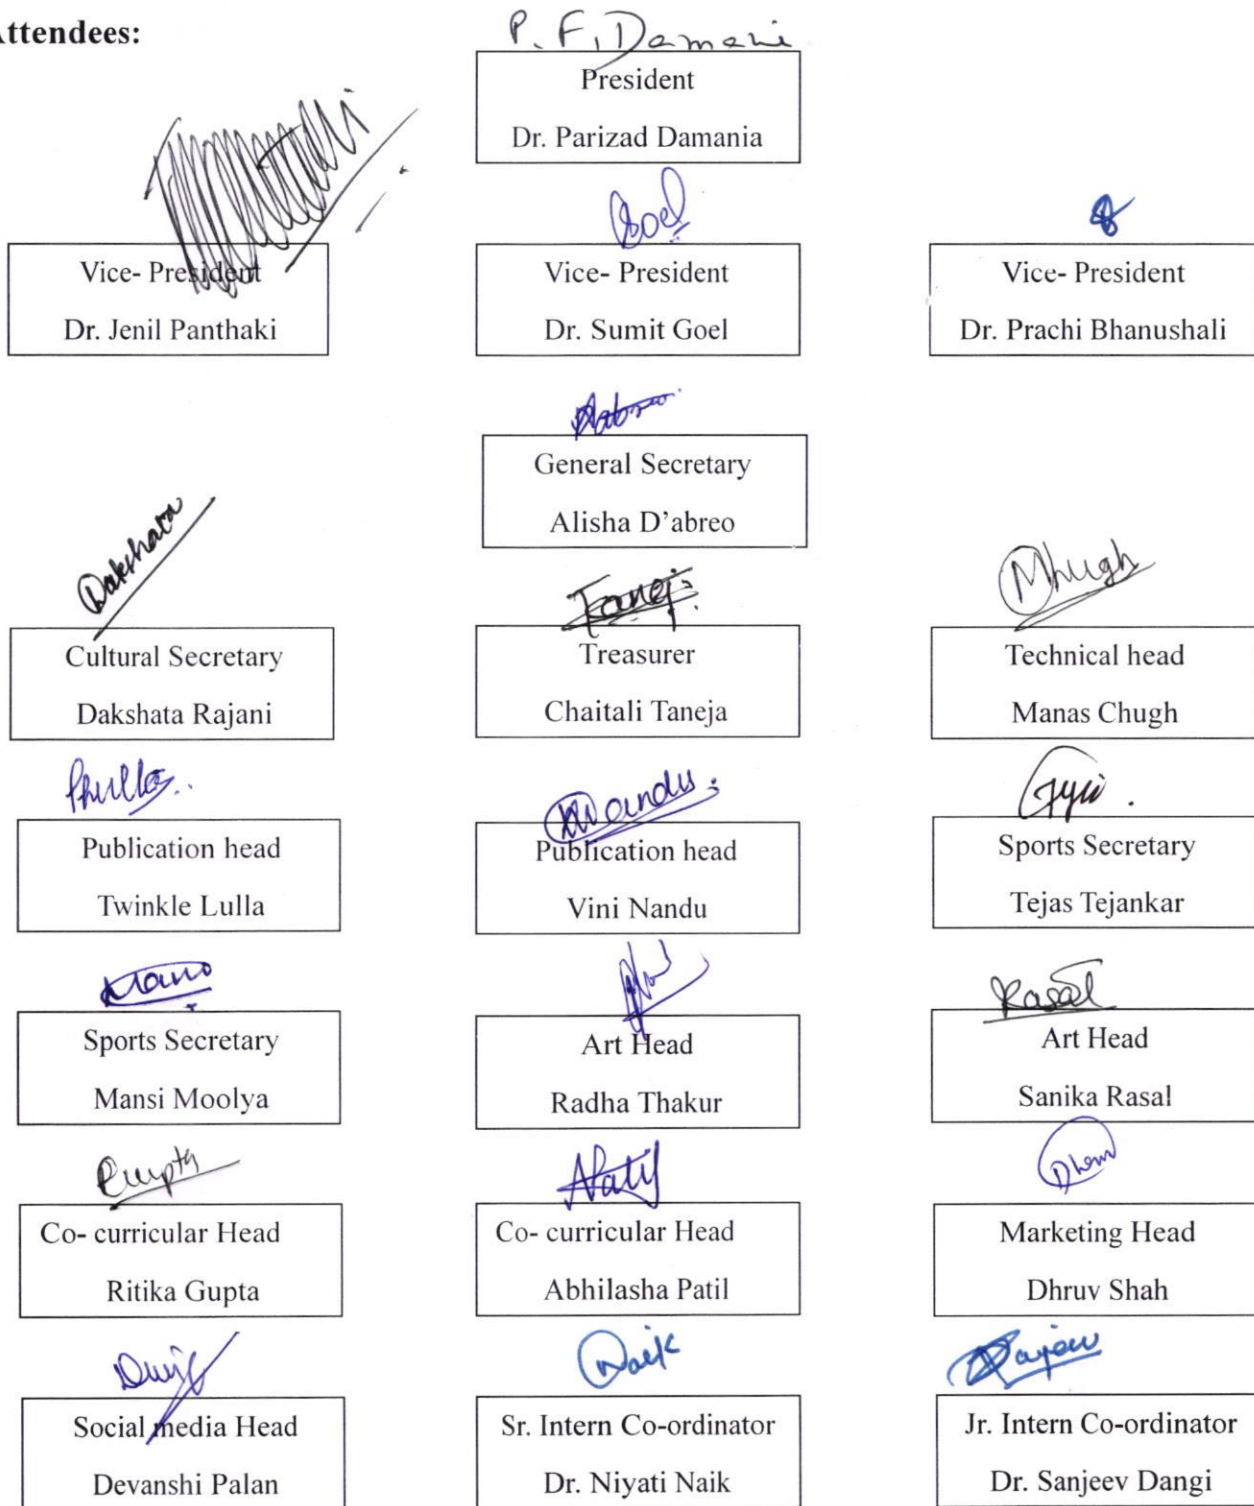 Attendees:
P. F. Damania
President
Dr. Parizad Damania
Goel
Vice- President
Dr. Jenil Panthaki
Vice- President
Dr. Sumit Goel
Vice- President
Dr. Prachi Bhanushali
General Secretary
Alisha D’abreo
Dakshata
Cultural Secretary
Dakshata Rajani
Treasurer
Chaitali Taneja
Mhugh
Technical head
Manas Chugh
Publication head
Twinkle Lulla
Publication head
Vini Nandu
Sports Secretary
Tejas Tejankar
Sports Secretary
Mansi Moolya
Art Head
Radha Thakur
Rasal
Art Head
Sanika Rasal
RGupta
Co- curricular Head
Ritika Gupta
APatil
Co- curricular Head
Abhilasha Patil
Marketing Head
Dhruv Shah
Social media Head
Devanshi Palan
Naik
Sr. Intern Co-ordinator
Dr. Niyati Naik
Jr. Intern Co-ordinator
Dr. Sanjeev Dangi